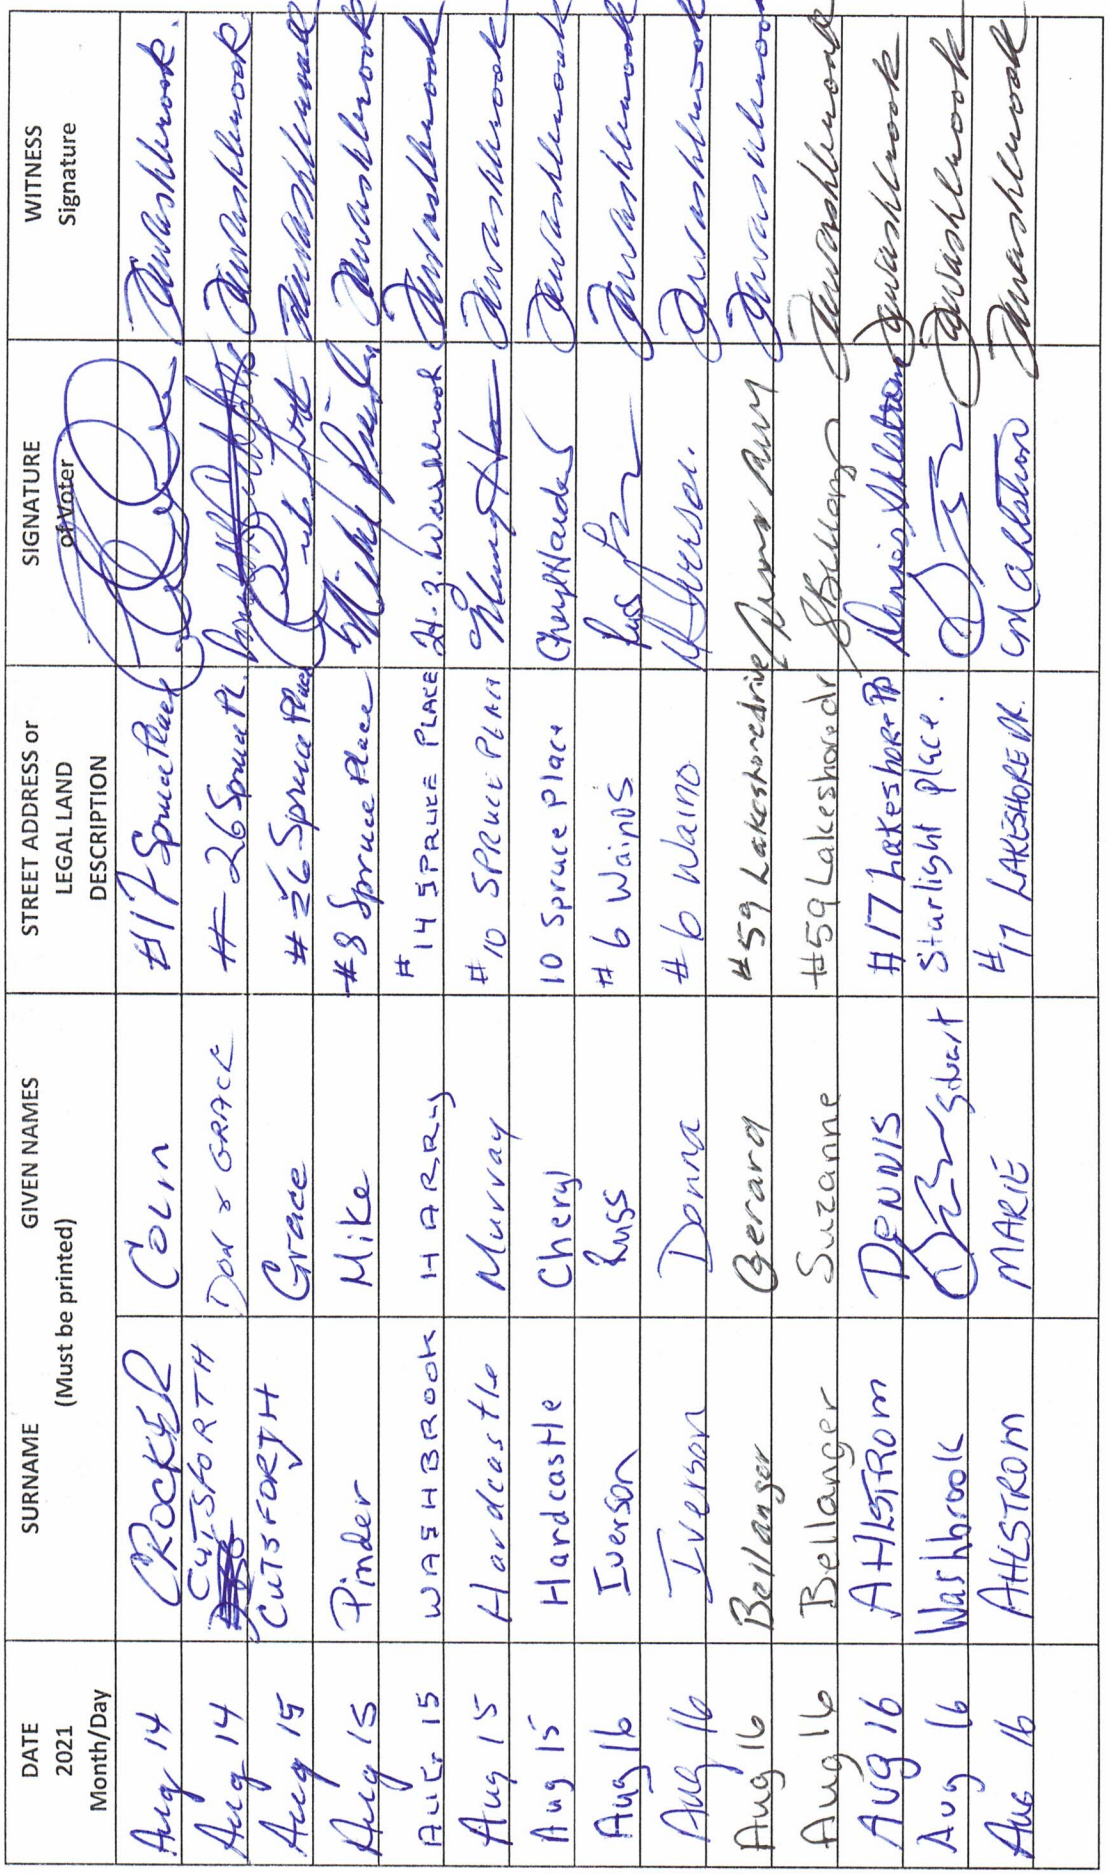 DATE
2021
Month/Day
SURNAME
GIVEN NAMES
(Must be printed)
STREET ADDRESS or
LEGAL LAND
DESCRIPTION
SIGNATURE
of Voter
WITNESS
Signature
Aug 14 CROCKER COLIN #17 Spruce Place
Aug 14 CUTSFORTH DON & GRACE #26 Spruce Pl.
Aug 15 CUTSFORTH Grace #26 Spruce Place
Aug 15 Pinder Mike #8 Spruce Place
AUG 15 WASHBROOK HARRY #14 SPRUCE PLACE H. J. Washbrook Jwashbrook
Aug 15 Hardcastle Murray #10 SPRUCE PLACE Jwashbrook
Aug 15 Hardcastle Cheryl 10 Spruce Place Cheryl Hardcas Jwashbrook
Aug 16 Iverson Russ #6 Wainos Russ Jwashbrook
Aug 16 Iverson Donna #6 Waino D Iverson. Jwashbrook
Aug 16 Bellanger Gerard #59 Lakeshore drive
Aug 16 Bellanger Suzanne #59 Lakeshore dr SBellanger Jwashbrook
AUG 16 AHLSTROM DENNIS #17 Lakeshore Dennis Ahlstrom Jwashbrook
Aug 16 Washbrook Stuart Starlight Place. Jwashbrook
Aug 16 AHLSTROM MARIE #17 LAKESHORE DR. M Ahlstrom Jwashbrook